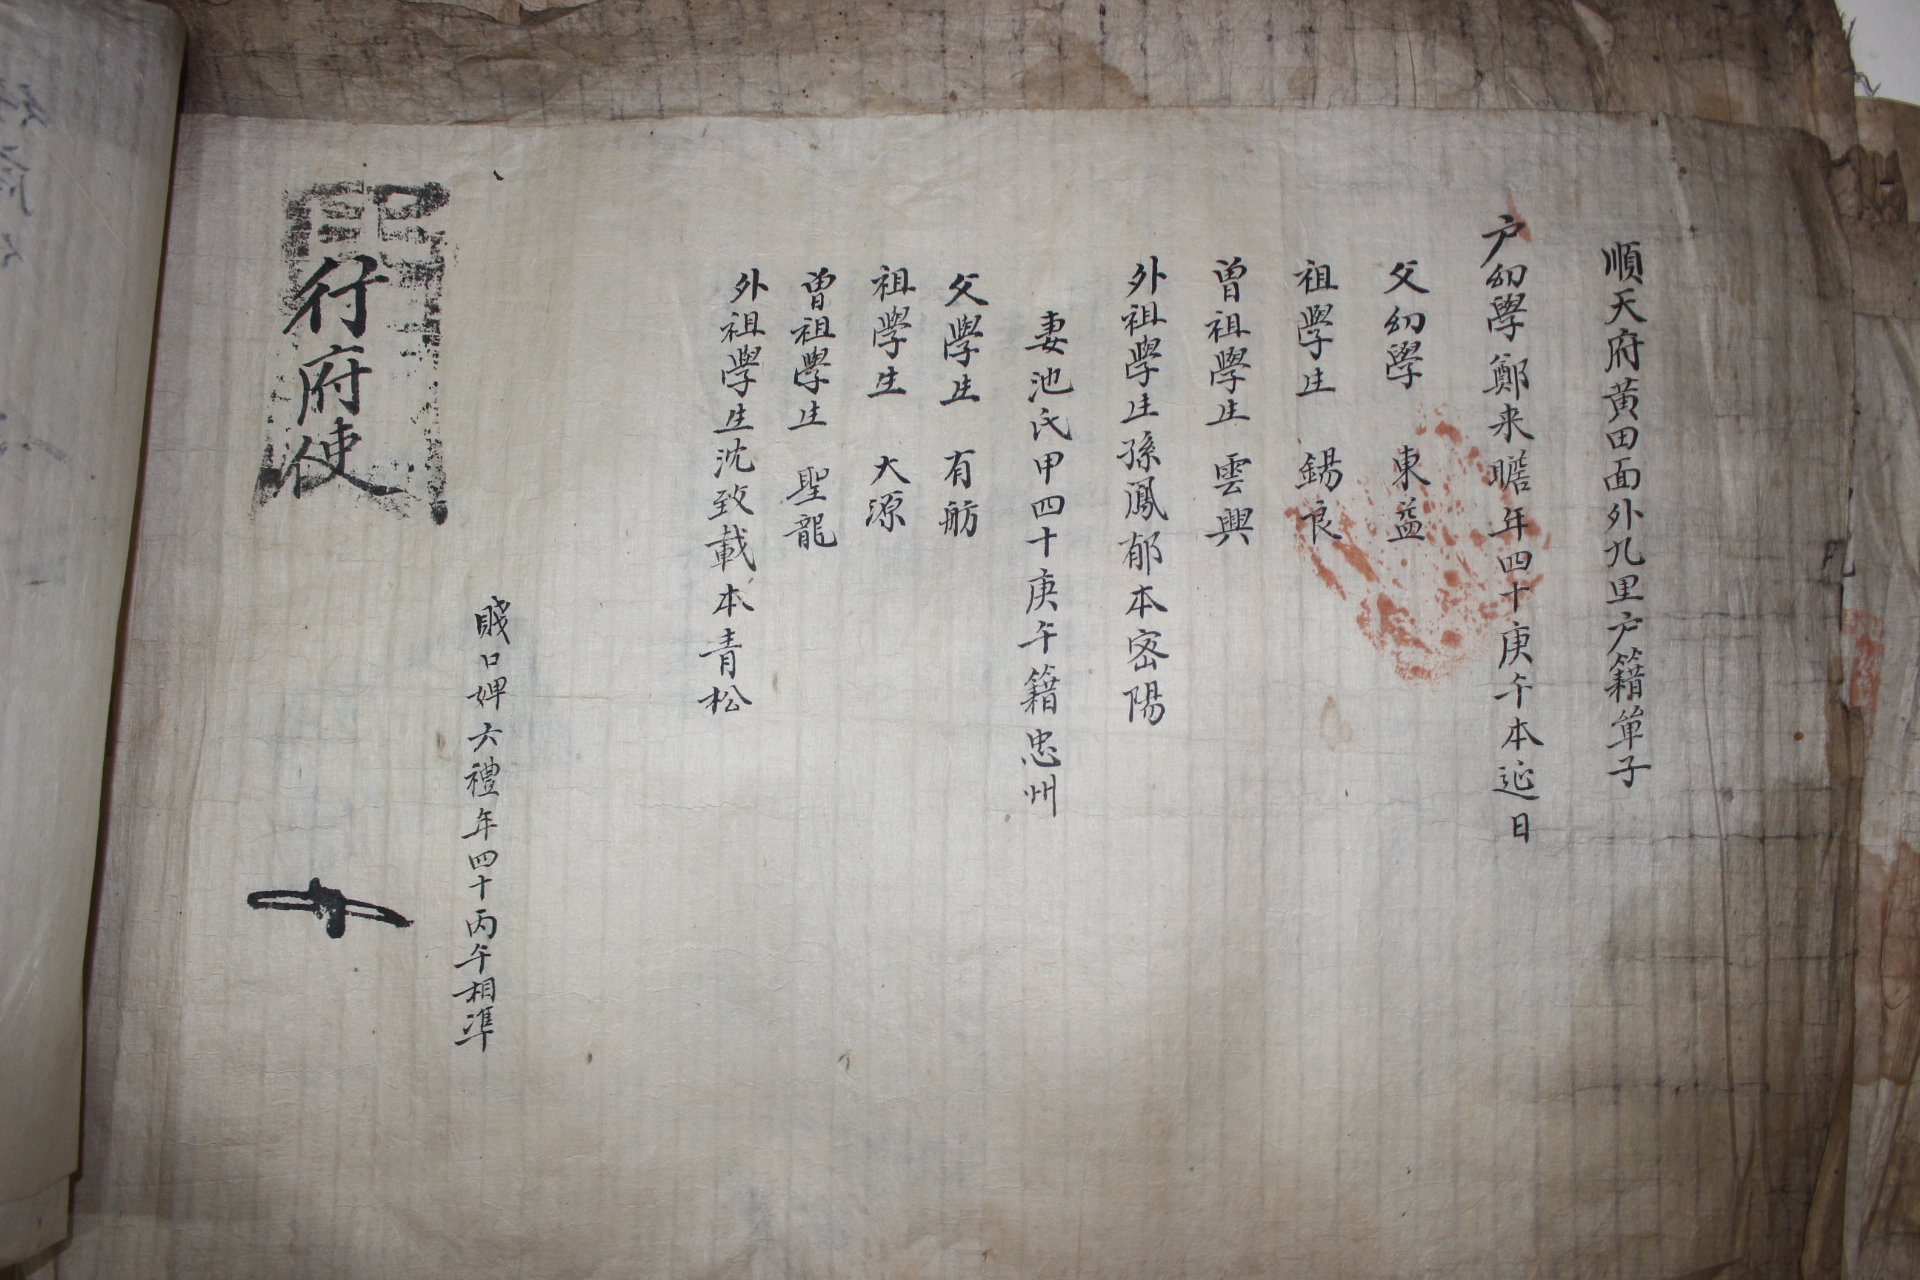 順天府黃田面外九里户籍單子
户幼學鄭来瞻年四十庚午本延日
父幼學 東益
祖學生 錫良
曽祖學生 雲興
外祖學生孫鳳郁本密陽
妻池氏甲四十庚午籍忠州
父學生 有舫
祖學生 大源
曽祖學生 聖龍
外祖學生沈致載本青松
賤口婢六禮年四十丙午相準
行府使